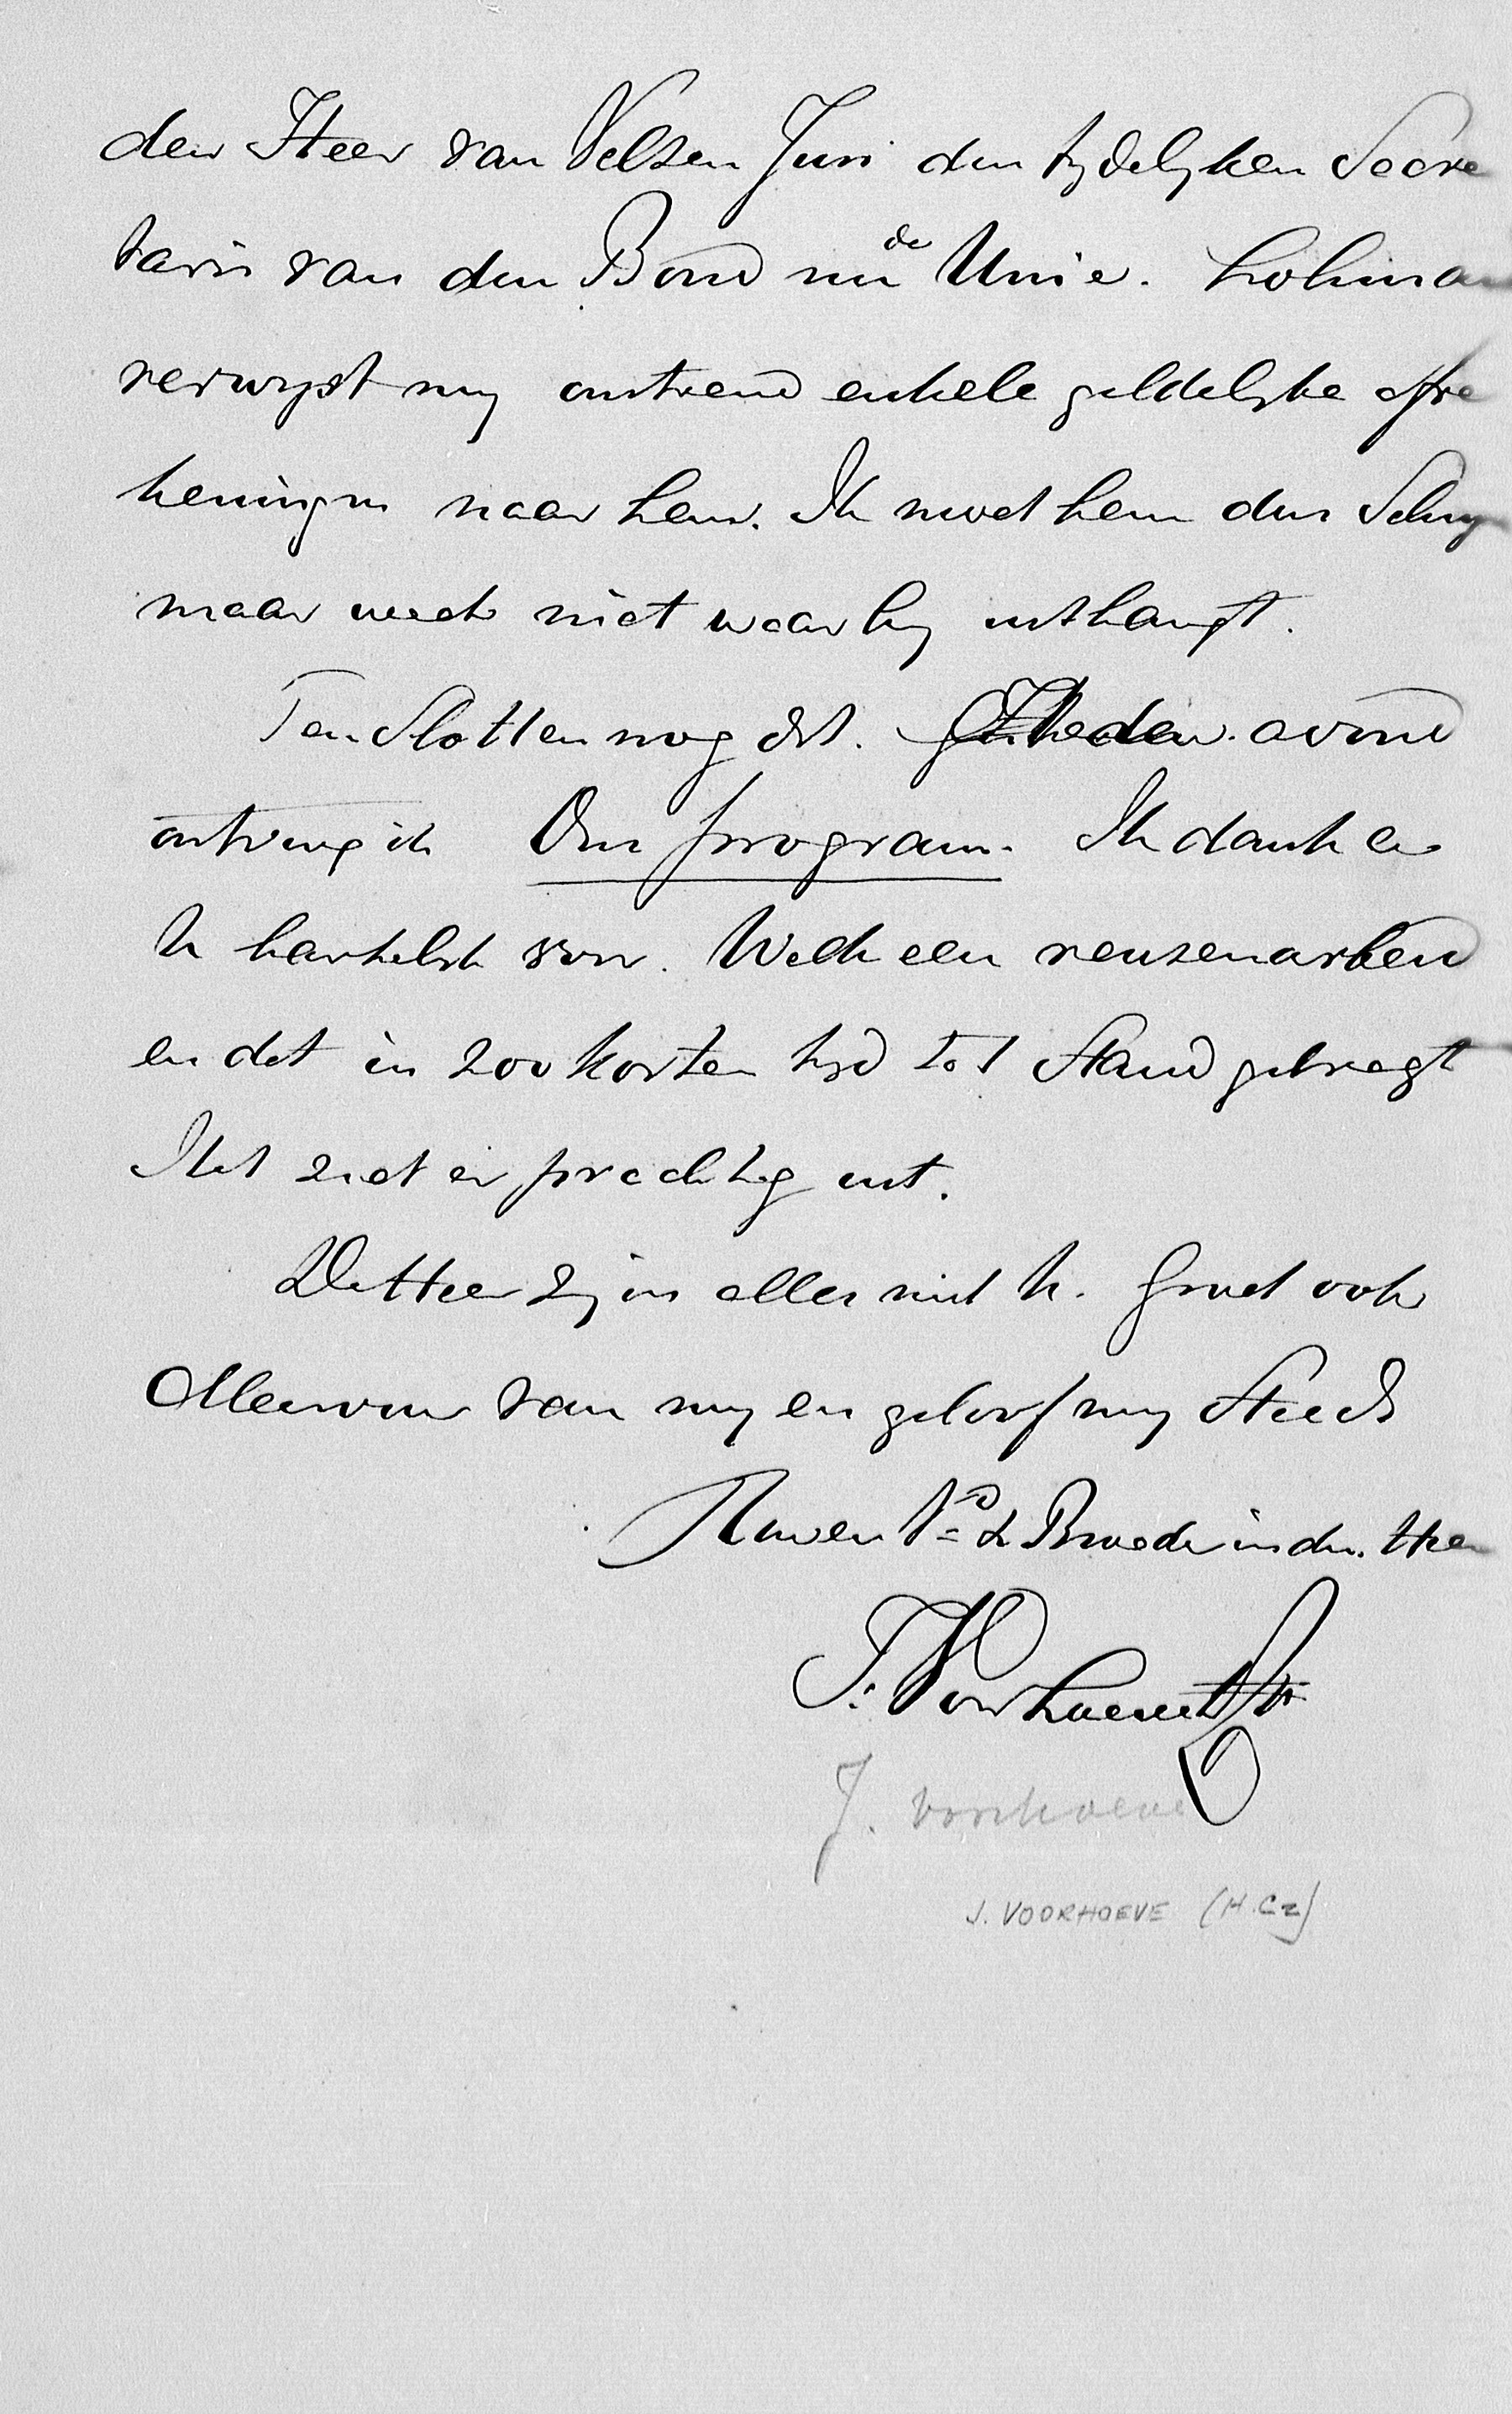 den Heer van Velsen Juni den tydelyken Secre
taris van den Bond nu de Unie. Lohman
verwyst my omtrend enkele geldelyke afre
keningen naar hem. Ik moet hem dus Schryven
maar weet niet waar hy uithangt.
Ten Slotten nog dit. Heden avond
ontving ik Ons program. Ik dank er
U hartelyk voor. Welk een reuzenarbeid
en dat in zoo korten tyd tot Stand gebragt
Het ziet er prachtig uit.
De Heer zy in alles met U. Groet ook
Mevrouw van my en geloof my Steeds
Uwen Vd & Broeder in den Heer
J. Voorhoeve HCz
J. Voorhoeve
J. VOORHOEVE (H.Cz)